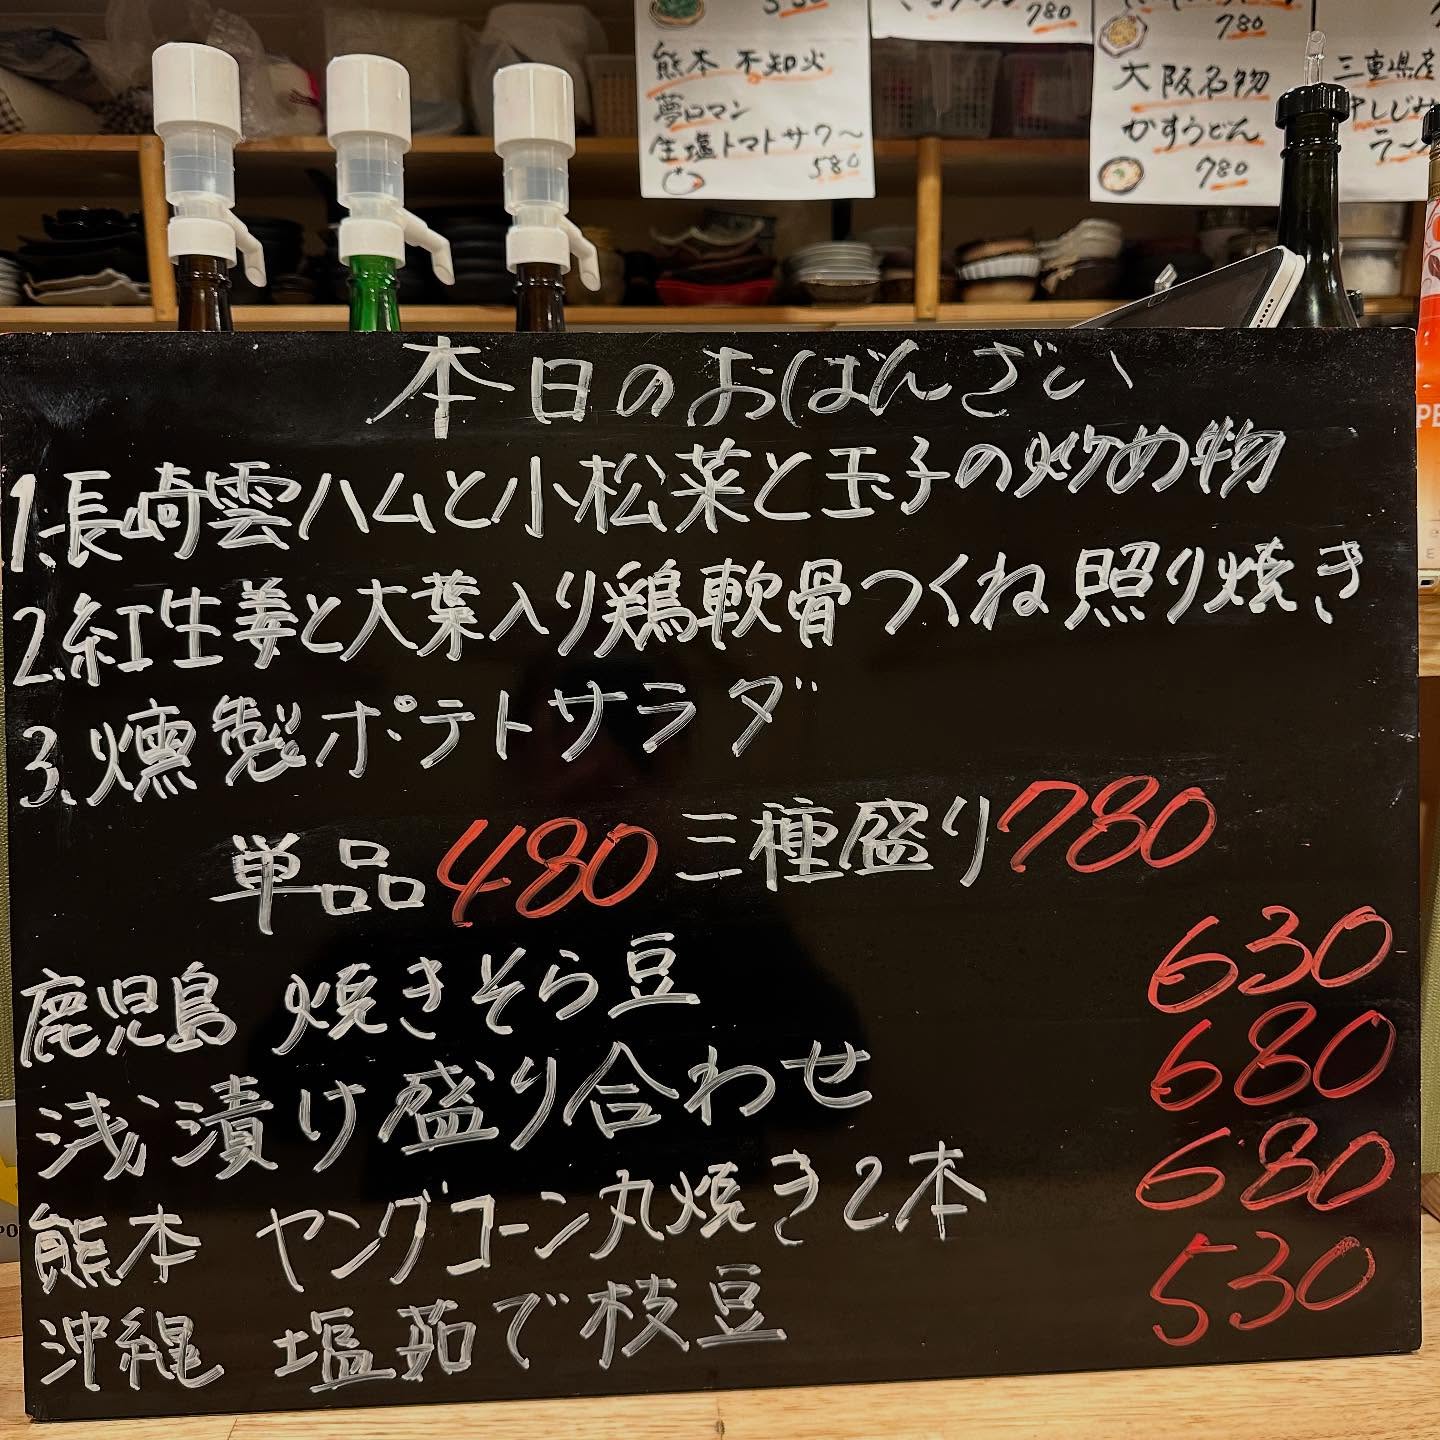 780
780
熊本 不知火
夢ロマン
生塩トマトサワー
580
大阪名物
かすうどん
780
三重県産
本日のおばんざい
1.長崎雲ハムと小松菜と玉子の炒め物
2.紅生姜と大葉入り鶏軟骨つくね照り焼き
3.燻製ポテトサラダ
単品480 三種盛り780
鹿児島 焼きそら豆 630
浅漬け盛り合わせ 680
熊本 ヤングコーン丸焼き2本 680
沖縄 塩茹で枝豆 530